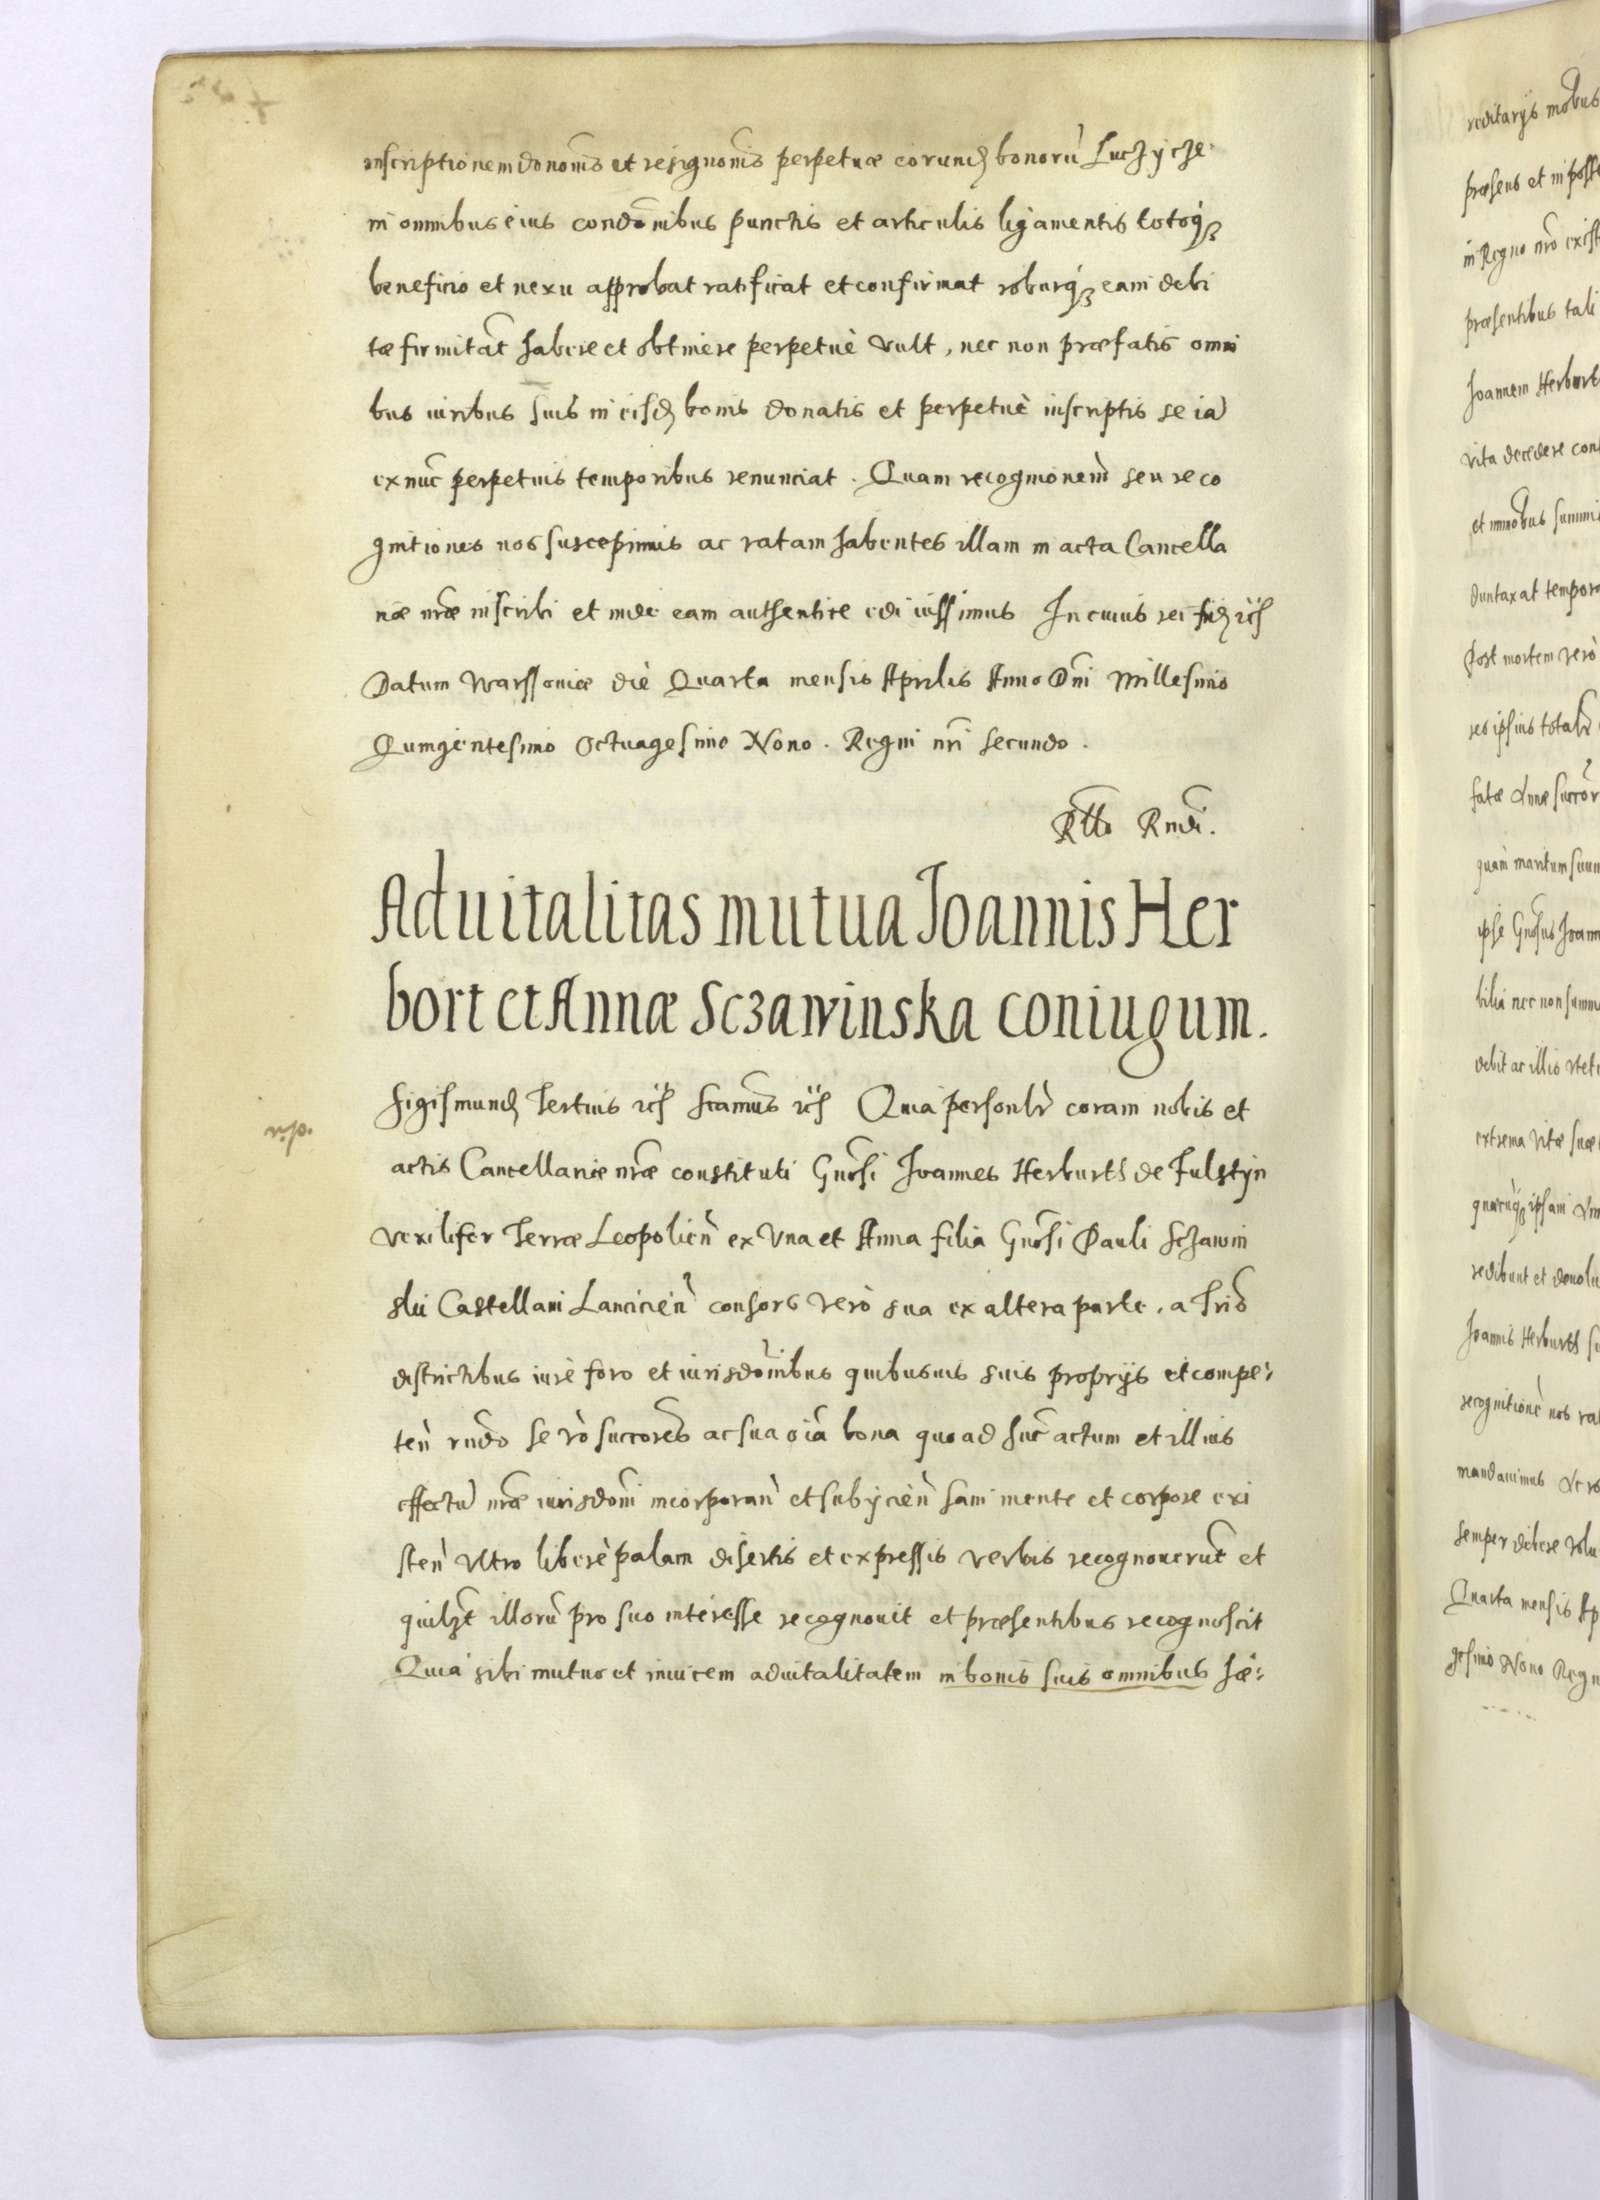 inscriptionem dononis et resignonis perpetuæ eorund bonorũ Luczycze
in omnibus eius condonibus punctis et articulis ligamentis totoq3
beneficio et nexu approbat ratificat et confirmat roburq3 eam debi
tæ firmitat habere et obtinere perpetuè vult, nec non præfatis omni
bus iuribus suis in eisd bonis donatis et perpetuè inscriptis se iã
ex nuc perpetuis temporibus renunciat. Quam recognionem seu reco
gnitiones nos suscepimus ac ratam habentes illam in acta Cancella
riæ nræ inscribi et inde eam authentice edi iussimus In cuius rei fid etc
Datum Warssoviæ die Quarta mensis Aprilis Anno Dni Millesimo
Quingentesimo Octuagesimo Nono. Regni nri secundo.
Rtto Rndi.
Aduitalitas mutua Joannis Her
bort et Annæ Sczawinska coniugum.
Sigismund Tertius etc Scamus etc Quia personlr coram nobis et
actis Cancellariæ nræ constituti Gnosi Joannes Herburth de Fulstyn
vexilifer Terræ Leopolien ex Vna et Anna filia Gnosi Pauli Sczawin
skii Castellani Lancicien consors verò sua ex altera parte, a Trio
districtibus iure foro et iurisdonibus quibusuis suis proprijs et compe:
ten rndo se rò succores ac sua oia bona quo ad huc actum et illius
effectũ nræ iurisdoni incorporan et subycien sani mente et corpore exi
sten vltro liberè palam disertis et expressis verbis recognouerut et
quilzt illorũ pro suo interesse recognouit et præsentibus recognoscit
Quia sibi mutuo et inuicem aduitalitatem in bonis suis omnibus hæ:
reditarijs mobus
præsens et in posse
in Regno nro exist
præsentibus tali
Joannem Herburt
vita decedere con
et immobus summis
duntaxat tempora
Post mortem verò
res ipsius totalr
fatæ Annæ succor
quàm maritum suum
ipse Gnosus Joann
bilia nec non summa
debit ac illis vteti
extrema vitæ suæ
quæcuq3 ipsam
redibunt et deuolu
Joannis Herburth su
recognitione nos rat
mandauimus
semper debere volu
Quarta mensis Ap
gesimo Nono Regn